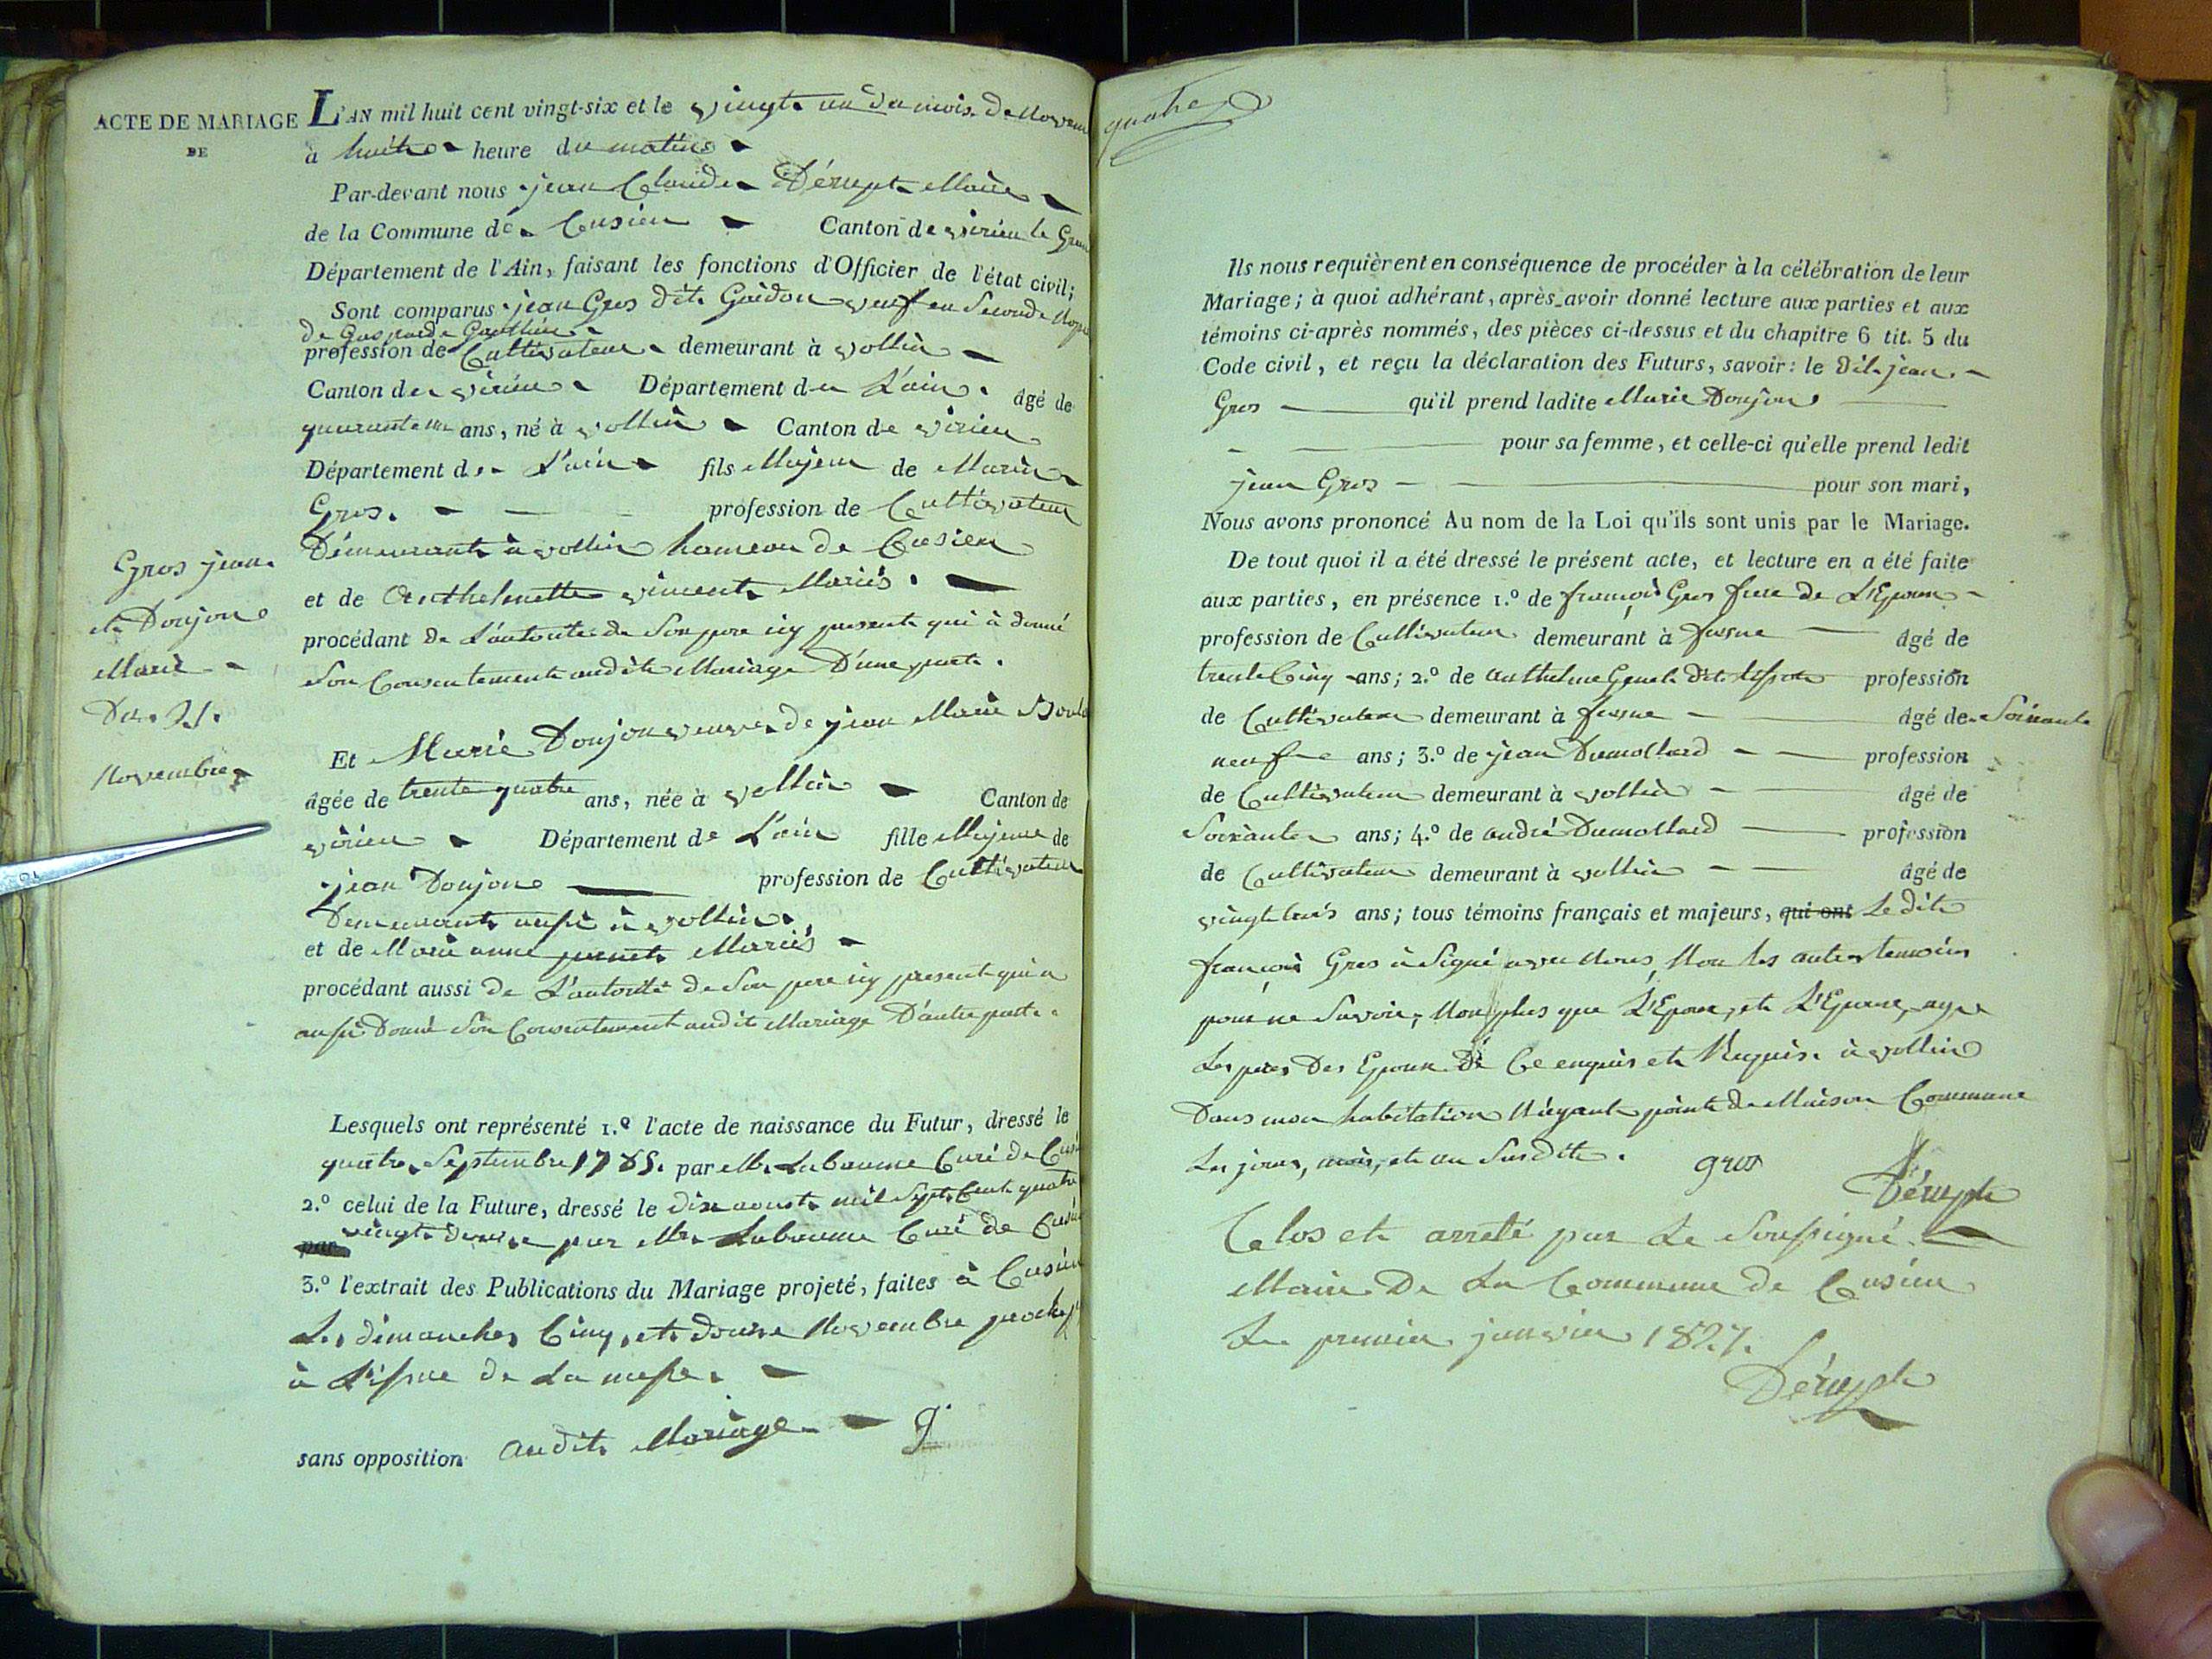 ACTE DE MARIAGE
DE
Gros jean
et Doujon
Marie
Du 21.
Novembre
L'AN mil huit cent vingt-six et le vingt un du mois de Novem
à huit heure du matins
Par-devant nous jean Claude Dérupt Maire
de la Commune de Cusieu Canton de virieu le Gran
Département de l'Ain, faisant les fonctions d'Officier de l'état civil;
Sont comparus jean Gros dit Guidon veuf en Seconde Nope
de Gasparde Gaullieu
profession de Cultivateur demeurant à vollien
Canton de virieu Département de L'ain âgé de
quarante un ans, né à vollien Canton de virieu
Département de L'ain fils Majeur de Marin
Gros. profession de Cultivateur
Demeurant à vollien hameau de Cusieu
et de Anthelmette vincent Mariés.
procédant de L'autorité de Son pere icy present qui à donné
Son Consentement audit Mariage D'une part.
Et Marie Doujon veuve de jean Marie
âgée de trente quatre ans, née à vollien Canton de
virieu Département de L'ain fille Majeure de
jean Doujon profession de Cultivateur
Demeurant aussi à vollien.
et de Marie anne Mariés
procédant aussi de L'autorité de Son pere icy present qui a
aussi Donné Son Consentement audit Mariage D'autre part.
Lesquels ont représenté 1.º l'acte de naissance du Futur, dressé le
quatre Septembre 1785. par Mr. Labaume Curé de Cusi
2.º celui de la Future, dressé le dix aoust mil Sept Cent quatre
par vingt douze par Mr. Labaume Curé de Cusieu
3.º l'extrait des Publications du Mariage projeté, faites à Cusieu
Les dimanches Cinq, et douze Novembre
à L'issue de La messe.
sans opposition audit Mariage
quatre
Ils nous requièrent en conséquence de procéder à la célébration de leur
Mariage; à quoi adhérant, après avoir donné lecture aux parties et aux
témoins ci-après nommés, des pièces ci-dessus et du chapitre 6 tit. 5 du
Code civil, et reçu la déclaration des Futurs, savoir: le dit jean
Gros qu'il prend ladite Marie Doujon
pour sa femme, et celle-ci qu'elle prend ledit
jean Gros pour son mari,
Nous avons prononcé Au nom de la Loi qu'ils sont unis par le Mariage.
De tout quoi il a été dressé le présent acte, et lecture en a été faite
aux parties, en présence 1.º de françois Gros frere de L'Epoux
profession de Cultivateur demeurant à âgé de
trente Cinq ans; 2.º de anthelme dit profession
de Cultivateur demeurant à âgé de Soixante
neuf ans; 3.º de jean Dumollard profession
de Cultivateur demeurant à vollien âgé de
Soixante ans; 4.º de andré Dumollard profession
de Cultivateur demeurant à vollien âgé de
vingt trois ans; tous témoins français et majeurs, qui ont Le dit
françois Gros à Signé avec Nous, Non les autres temoins
pour ne Savoir, Non plus que L'Epoux, et L'Epouse,
Les peres Des Epoux De Ce enquis et Requis. à vollien
Dans mon habitation N'ayant point de Maison Commune
Les jours, mois, et an Susdit.
gros
Dérupt
Clos et arreté par Le Soussigné
Maire De La Commune de Cusieu
Le premier janvier 1827.
Dérupt